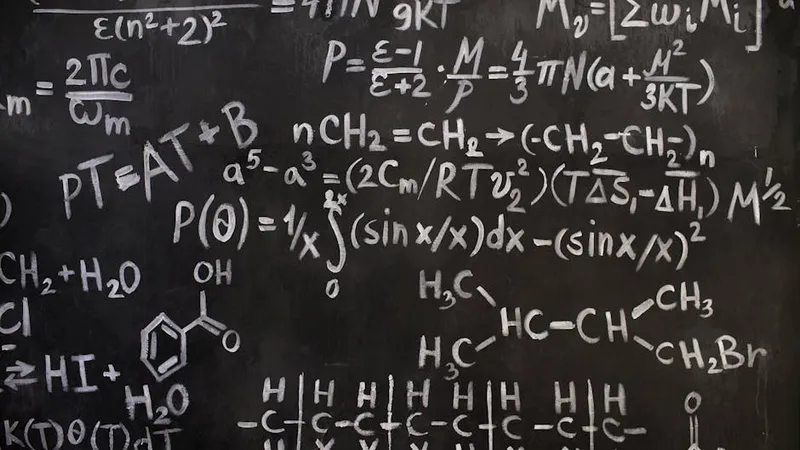 ε(n²+2)²
9KT
Mᵥ=[Σωᵢ Mᵢ]
P=ε-1/ε+2·M/ρ=4/3πN(a+M²/3KT)
m=2πc/ωₘ
PT=AT+B
nCH₂=CH₂→(-CH₂-CH₂-)ₙ
a⁵-a³=(2Cₘ/RTv₂²)(TΔS₁-ΔH₁)M^½
P(θ)=1/x∫₀²ˣ(sin x/x)dx-(sinx/x)²
CH₂+H₂O
OH
O
Cl
H₃C
CH₃
HC-CH
H₃C
CH₂Br
⇌HI+
H₂O
H H H H H H H
-C-C-C-C-C-C-C-
O
K(T)θ(T)dT